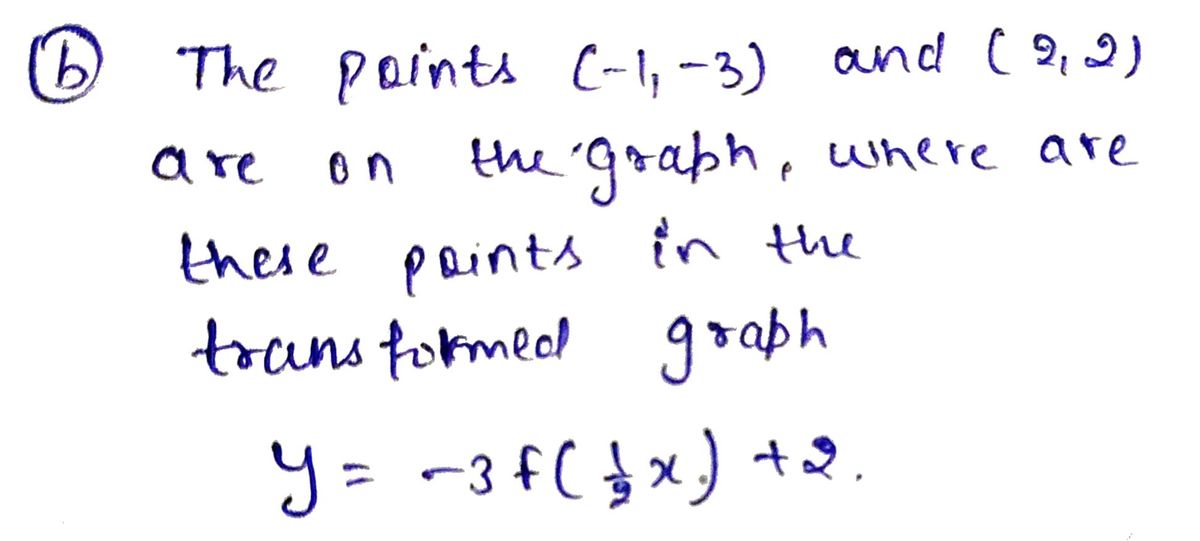 ⓑ The points (-1, -3) and (2, 2)
are on the graph, where are
these points in the
transformed graph
y = -3 f( 1/2 x ) + 2.